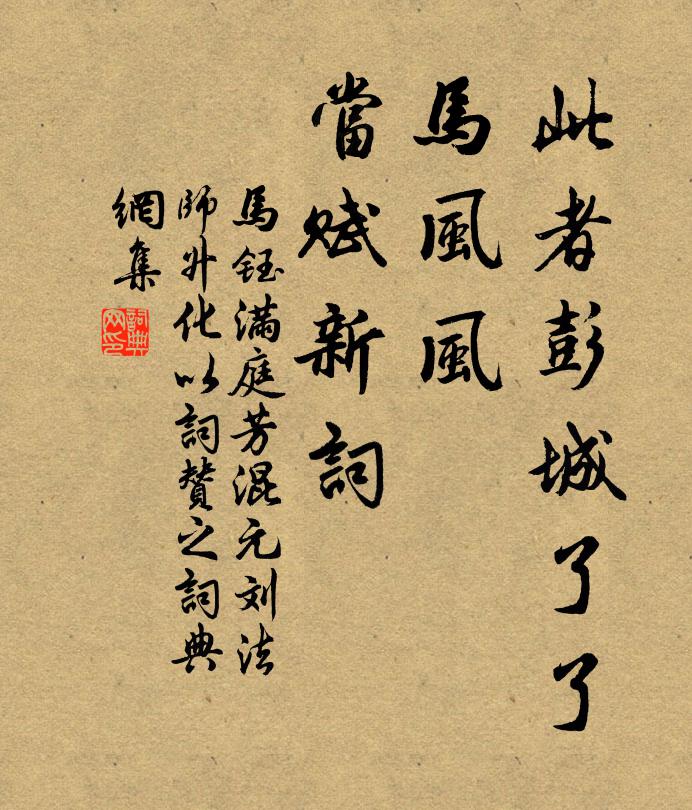 此者彭城了了
馬風風
當赋新詞
馬鈺滿庭芳混元刘法
師升化以詞贊之詞典
網集
詞典
网印